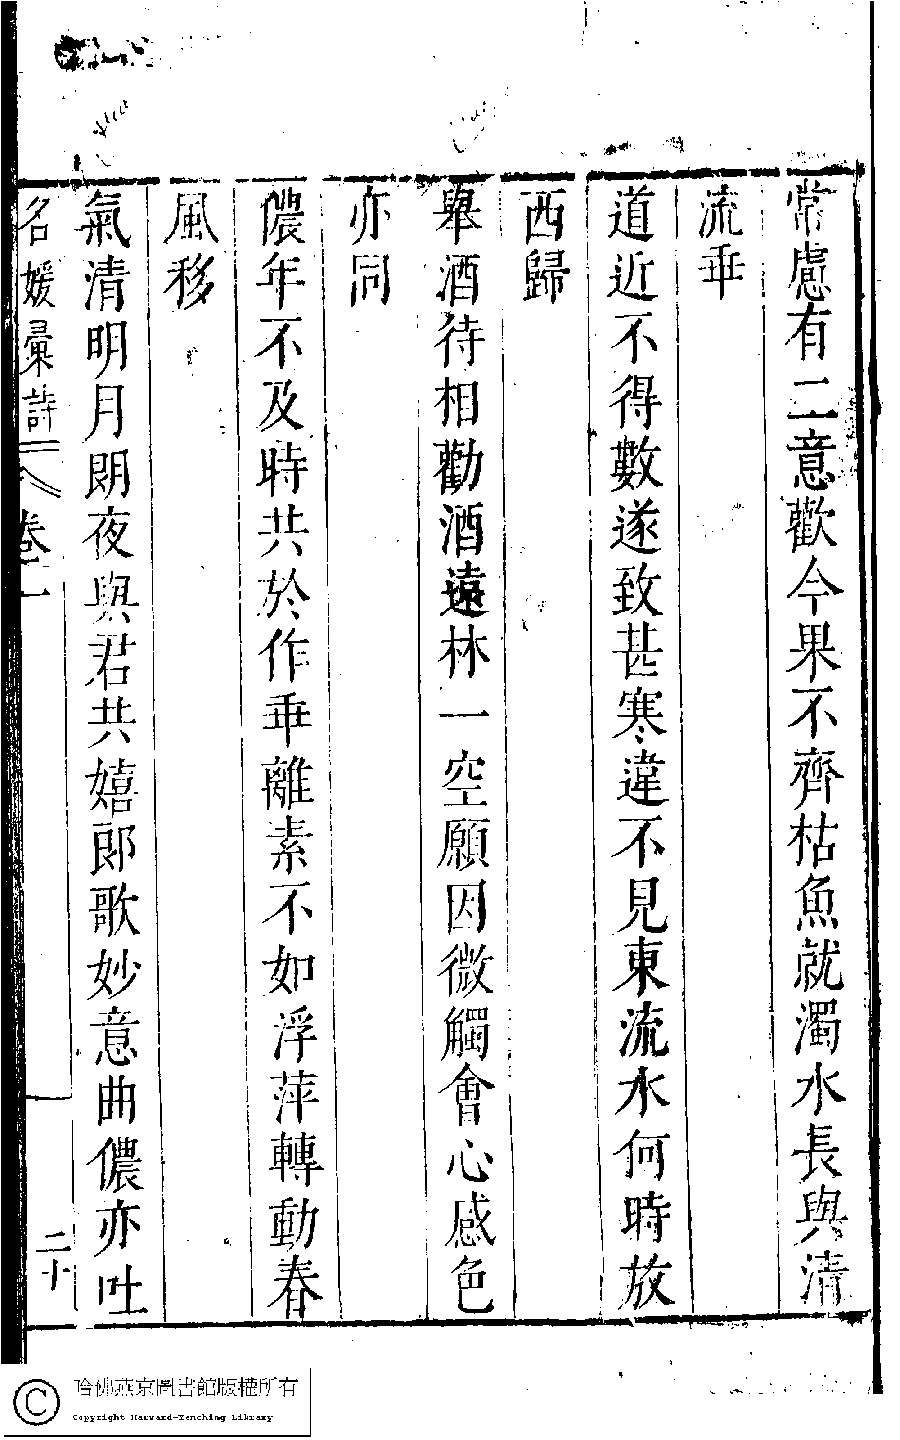 常慮有二意歡今果不齊枯魚就濁水長與清
流乖
道近不得數遂致甚寒違不見東流水何時放
西歸
舉酒待相勸酒還林一空願因微觸會心感色
亦同
儂年不及時共於作乖離素不如浮萍轉動春
風移
氣清明月朗夜與君共嬉郎歌妙意曲儂亦吐
名媛彙詩 卷一 二十
哈佛燕京圖書館版權所有
Copyright Harvard-Yenching Library